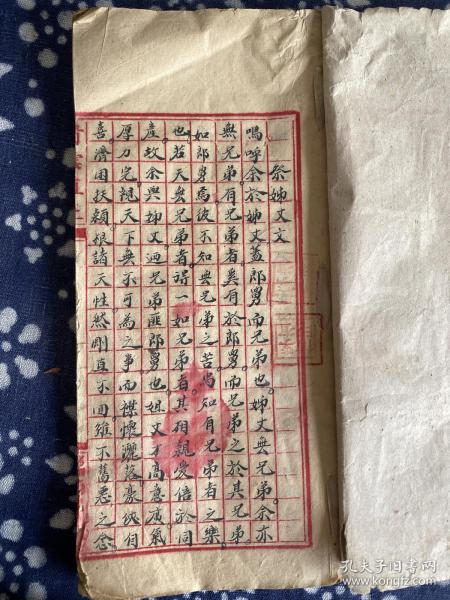 祭姊丈文
嗚呼余於姊丈蓋郎舅而兄弟也姊丈無兄弟余亦
無兄弟有兄弟者奚有於郎舅而兄弟之於其兄弟
如郎舅焉彼不知無兄弟之苦尚知有兄弟者之樂
也若夫無兄弟者得一如兄弟者其相親愛倍於同
產故余與姊丈迺兄弟匪郎舅也姐丈才高意廣氣
厚力完視天下無不可為之事而襟懷灑落豪俠自
喜濟困扶顛根諸天性然剛直不回雖不舊惡之念
孔夫子旧书网
www.kongfz.com